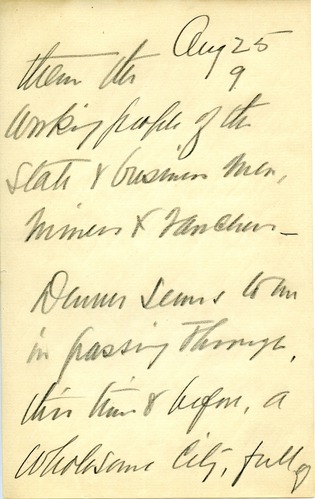 Aug 25
9
them the
working people of the
State & business men,
miners & ranchers —
Denver seems to me
in passing through,
this time & before, a
wholesome city, full of